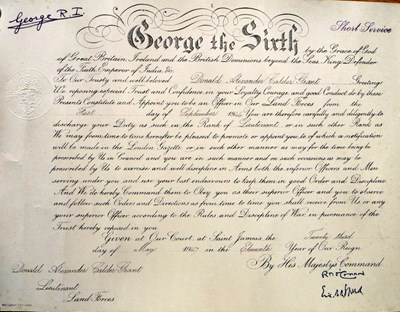 George R.I.
Short Service
George the Sixth
by the Grace of God
of Great Britain, Ireland and the British Dominions beyond the Seas, King, Defender
of the Faith, Emperor of India, &c.
To Our Trusty and well beloved Donald Alexander Calder Grant Greeting!
We, reposing especial Trust and Confidence in your Loyalty, Courage, and good Conduct, do by these
Presents Constitute and Appoint you to be an Officer in Our Land Forces from the
First day of September 1945. You are therefore carefully and diligently to
discharge your Duty as such in the Rank of Lieutenant or in such other Rank as
We may from time to time hereafter be pleased to promote or appoint you to, of which a notification
will be made in the London Gazette, or in such other manner as may for the time being be
prescribed by Us in Council, and you are in such manner and on such occasions as may be
prescribed by Us to exercise and well discipline in Arms both the inferior Officers and Men
serving under you and use your best endeavours to keep them in good Order and Discipline.
And We do hereby Command them to Obey you as their superior Officer and you to observe
and follow such Orders and Directions as from time to time you shall receive from Us, or any
your superior Officer, according to the Rules and Discipline of War, in pursuance of the
Trust hereby reposed in you.
Given at Our Court, at Saint James's, the Twenty third
day of May 1947 in the Eleventh Year of Our Reign
By His Majesty's Command
Donald Alexander Calder Grant
Lieutenant
Land Forces